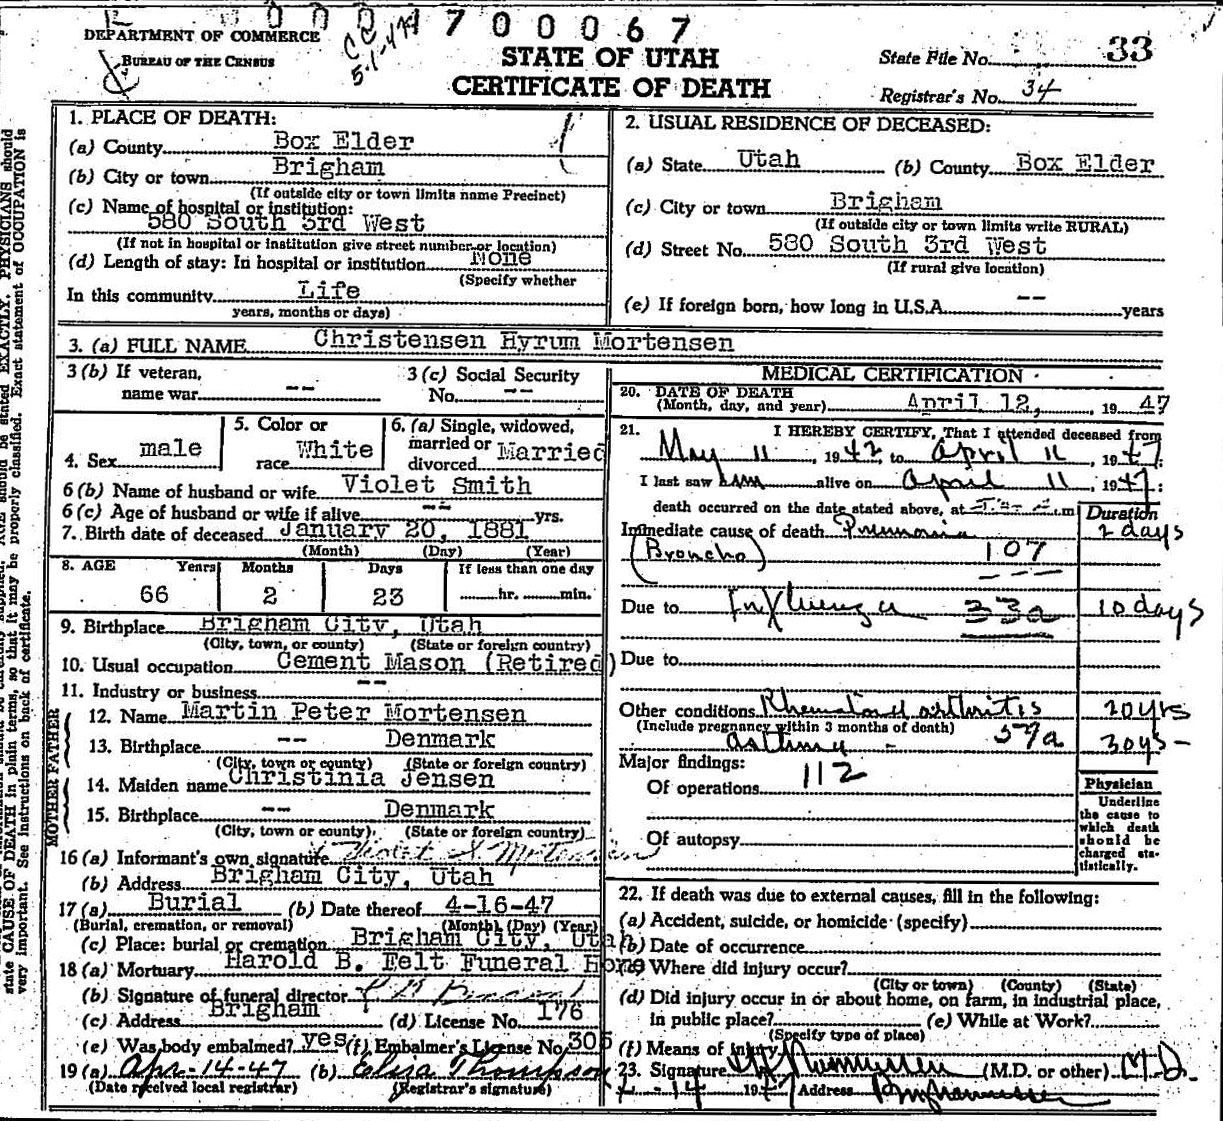 000 700067
DEPARTMENT OF COMMERCE
BUREAU OF THE CENSUS
5-1-47
STATE OF UTAH
CERTIFICATE OF DEATH
State File No. 33
Registrar's No. 34
1. PLACE OF DEATH:
(a) County Box Elder
(b) City or town Brigham
(If outside city or town limits name Precinct)
(c) Name of hospital or institution:
580 South 3rd West
(If not in hospital or institution give street number or location)
(d) Length of stay: In hospital or institution None
(Specify whether
In this community Life
years, months or days)
2. USUAL RESIDENCE OF DECEASED:
(a) State Utah (b) County Box Elder
(c) City or town Brigham
(If outside city or town limits write RURAL)
(d) Street No. 580 South 3rd West
(If rural give location)
(e) If foreign born, how long in U.S.A. -- years
3. (a) FULL NAME Christensen Hyrum Mortensen
3 (b) If veteran,
name war -- 
3 (c) Social Security
No. --
4. Sex male
5. Color or
race White
6. (a) Single, widowed,
married or
divorced Married
6 (b) Name of husband or wife Violet Smith
6 (c) Age of husband or wife if alive -- yrs.
7. Birth date of deceased January 20, 1881
(Month) (Day) (Year)
8. AGE Years Months Days If less than one day
66 2 23 hr. min.
9. Birthplace Brigham City, Utah
(City, town, or county) (State or foreign country)
10. Usual occupation Cement Mason (Retired)
11. Industry or business --
FATHER
12. Name Martin Peter Mortensen
13. Birthplace -- Denmark
(City, town or county) (State or foreign country)
MOTHER
14. Maiden name Christinia Jensen
15. Birthplace -- Denmark
(City, town or county) (State or foreign country)
16 (a) Informant's own signature Violet S Mortensen
(b) Address Brigham City, Utah
17 (a) Burial (b) Date thereof 4-16-47
(Burial, cremation, or removal) (Month) (Day) (Year)
(c) Place: burial or cremation Brigham City, Utah
18 (a) Mortuary Harold B. Felt Funeral Home
(b) Signature of funeral director
(c) Address Brigham (d) License No. 176
(e) Was body embalmed? yes (f) Embalmer's License No. 305
19 (a) Apr-14-47 (b) Eliza Thompson
(Date received local registrar) (Registrar's signature)
MEDICAL CERTIFICATION
20. DATE OF DEATH
(Month, day, and year) April 12, 1947
21. I HEREBY CERTIFY, That I attended deceased from
May 11, 1942, to April 11, 1947;
I last saw him alive on April 11, 1947;
death occurred on the date stated above, at m
Duration
Immediate cause of death Pneumonia 2 days
(Broncho) 107
Due to Influenza 33a 10 days
Due to
Other conditions Rheumatoid arthritis 20 yrs
(Include pregnancy within 3 months of death) 59a
asthma - 30 ys -
Major findings: 112
Of operations
Of autopsy
Physician
Underline
the cause to
which death
should be
charged sta-
tistically.
22. If death was due to external causes, fill in the following:
(a) Accident, suicide, or homicide (specify)
(b) Date of occurrence
(c) Where did injury occur?
(City or town) (County) (State)
(d) Did injury occur in or about home, on farm, in industrial place,
in public place? (e) While at Work?
(Specify type of place)
(f) Means of injury
23. Signature (M.D. or other) M.D.
4-14 1947 Address
state CAUSE OF DEATH in plain terms, so that it may be properly classified. Exact statement of OCCUPATION is
very important. See instructions on back of certificate.